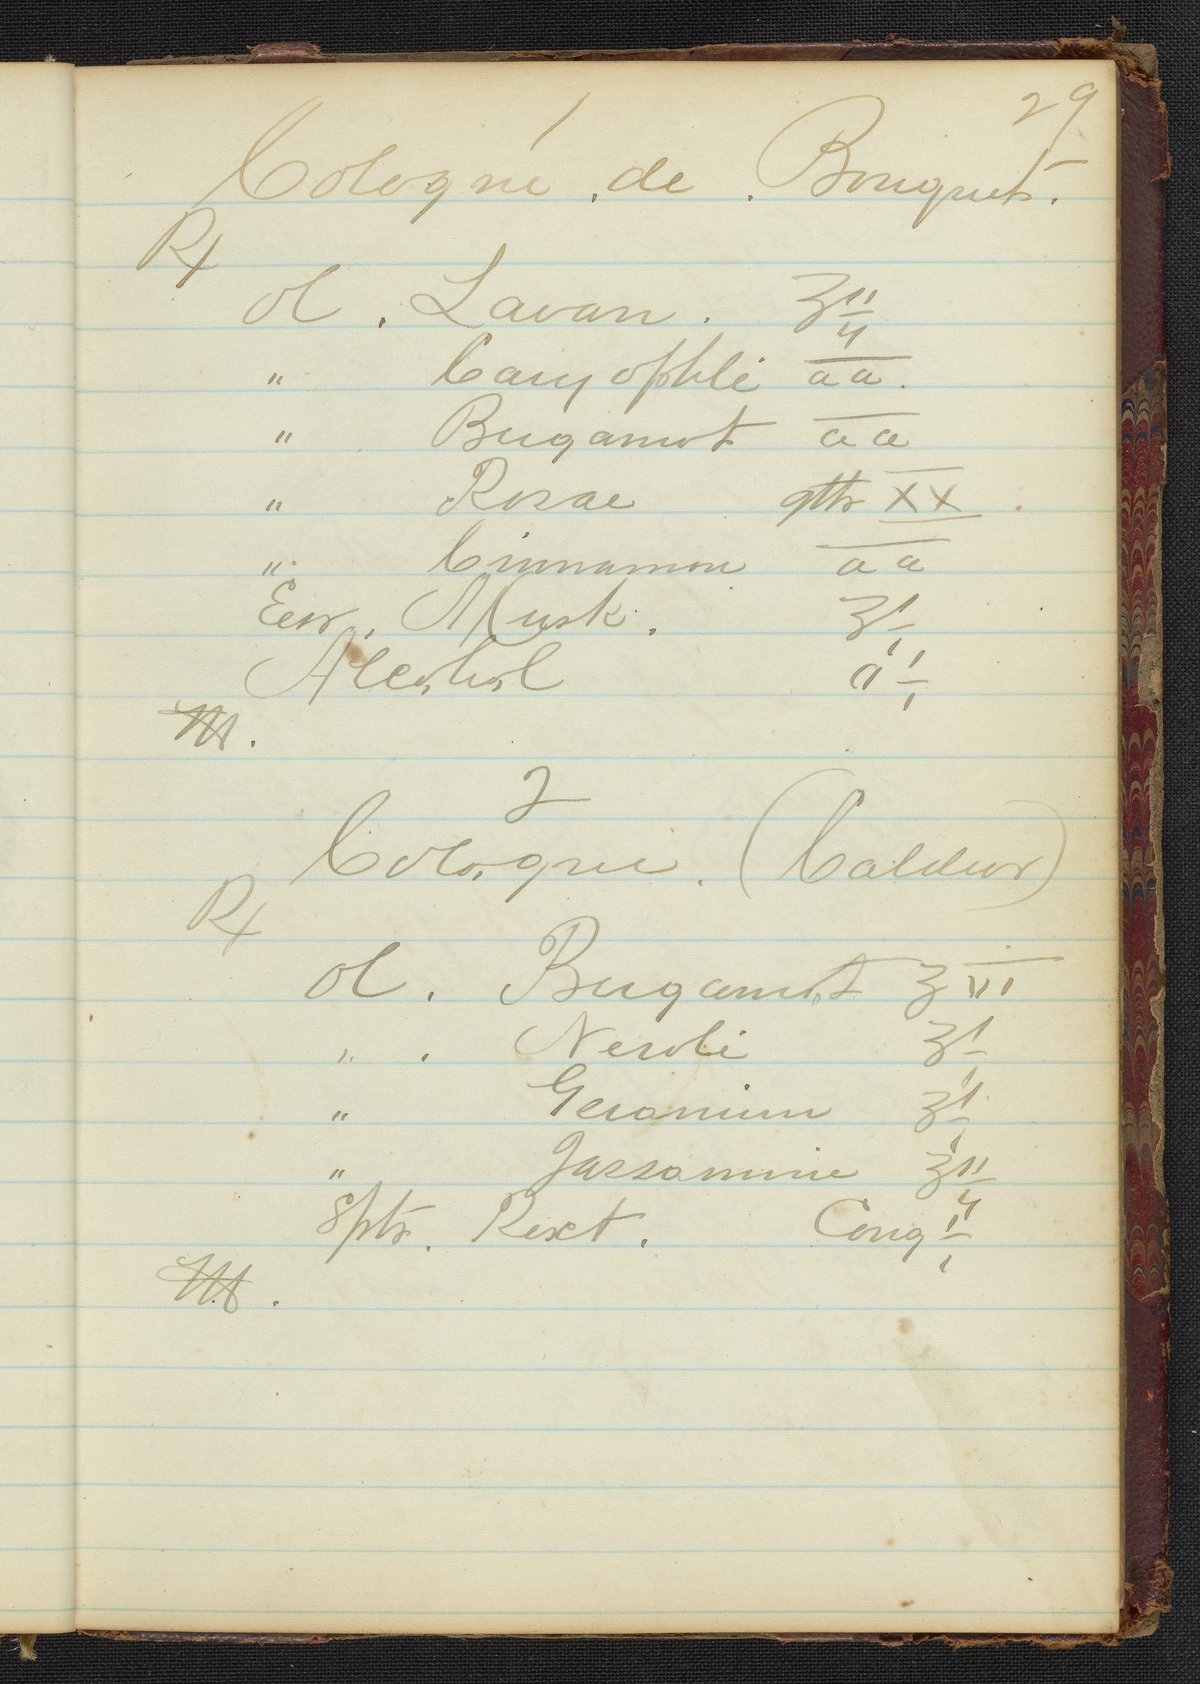 29
1
Cologne . de . Bouquet.
Rx
Ol . Lavan . ʒ ii
" Caryophli aa .
" Bergamot aa
" Rosae gtts XX
" Cinnamon aa
Ess . Musk . ʒ i
Alcohol O i
M .
2
Cologne . (Caldwr)
Rx
Ol . Bergamot ʒ iii
" . Neroli ʒ i
" Geranium ʒ i
" Jassamine ʒ ii
Spts . Rect . Cong i
M .